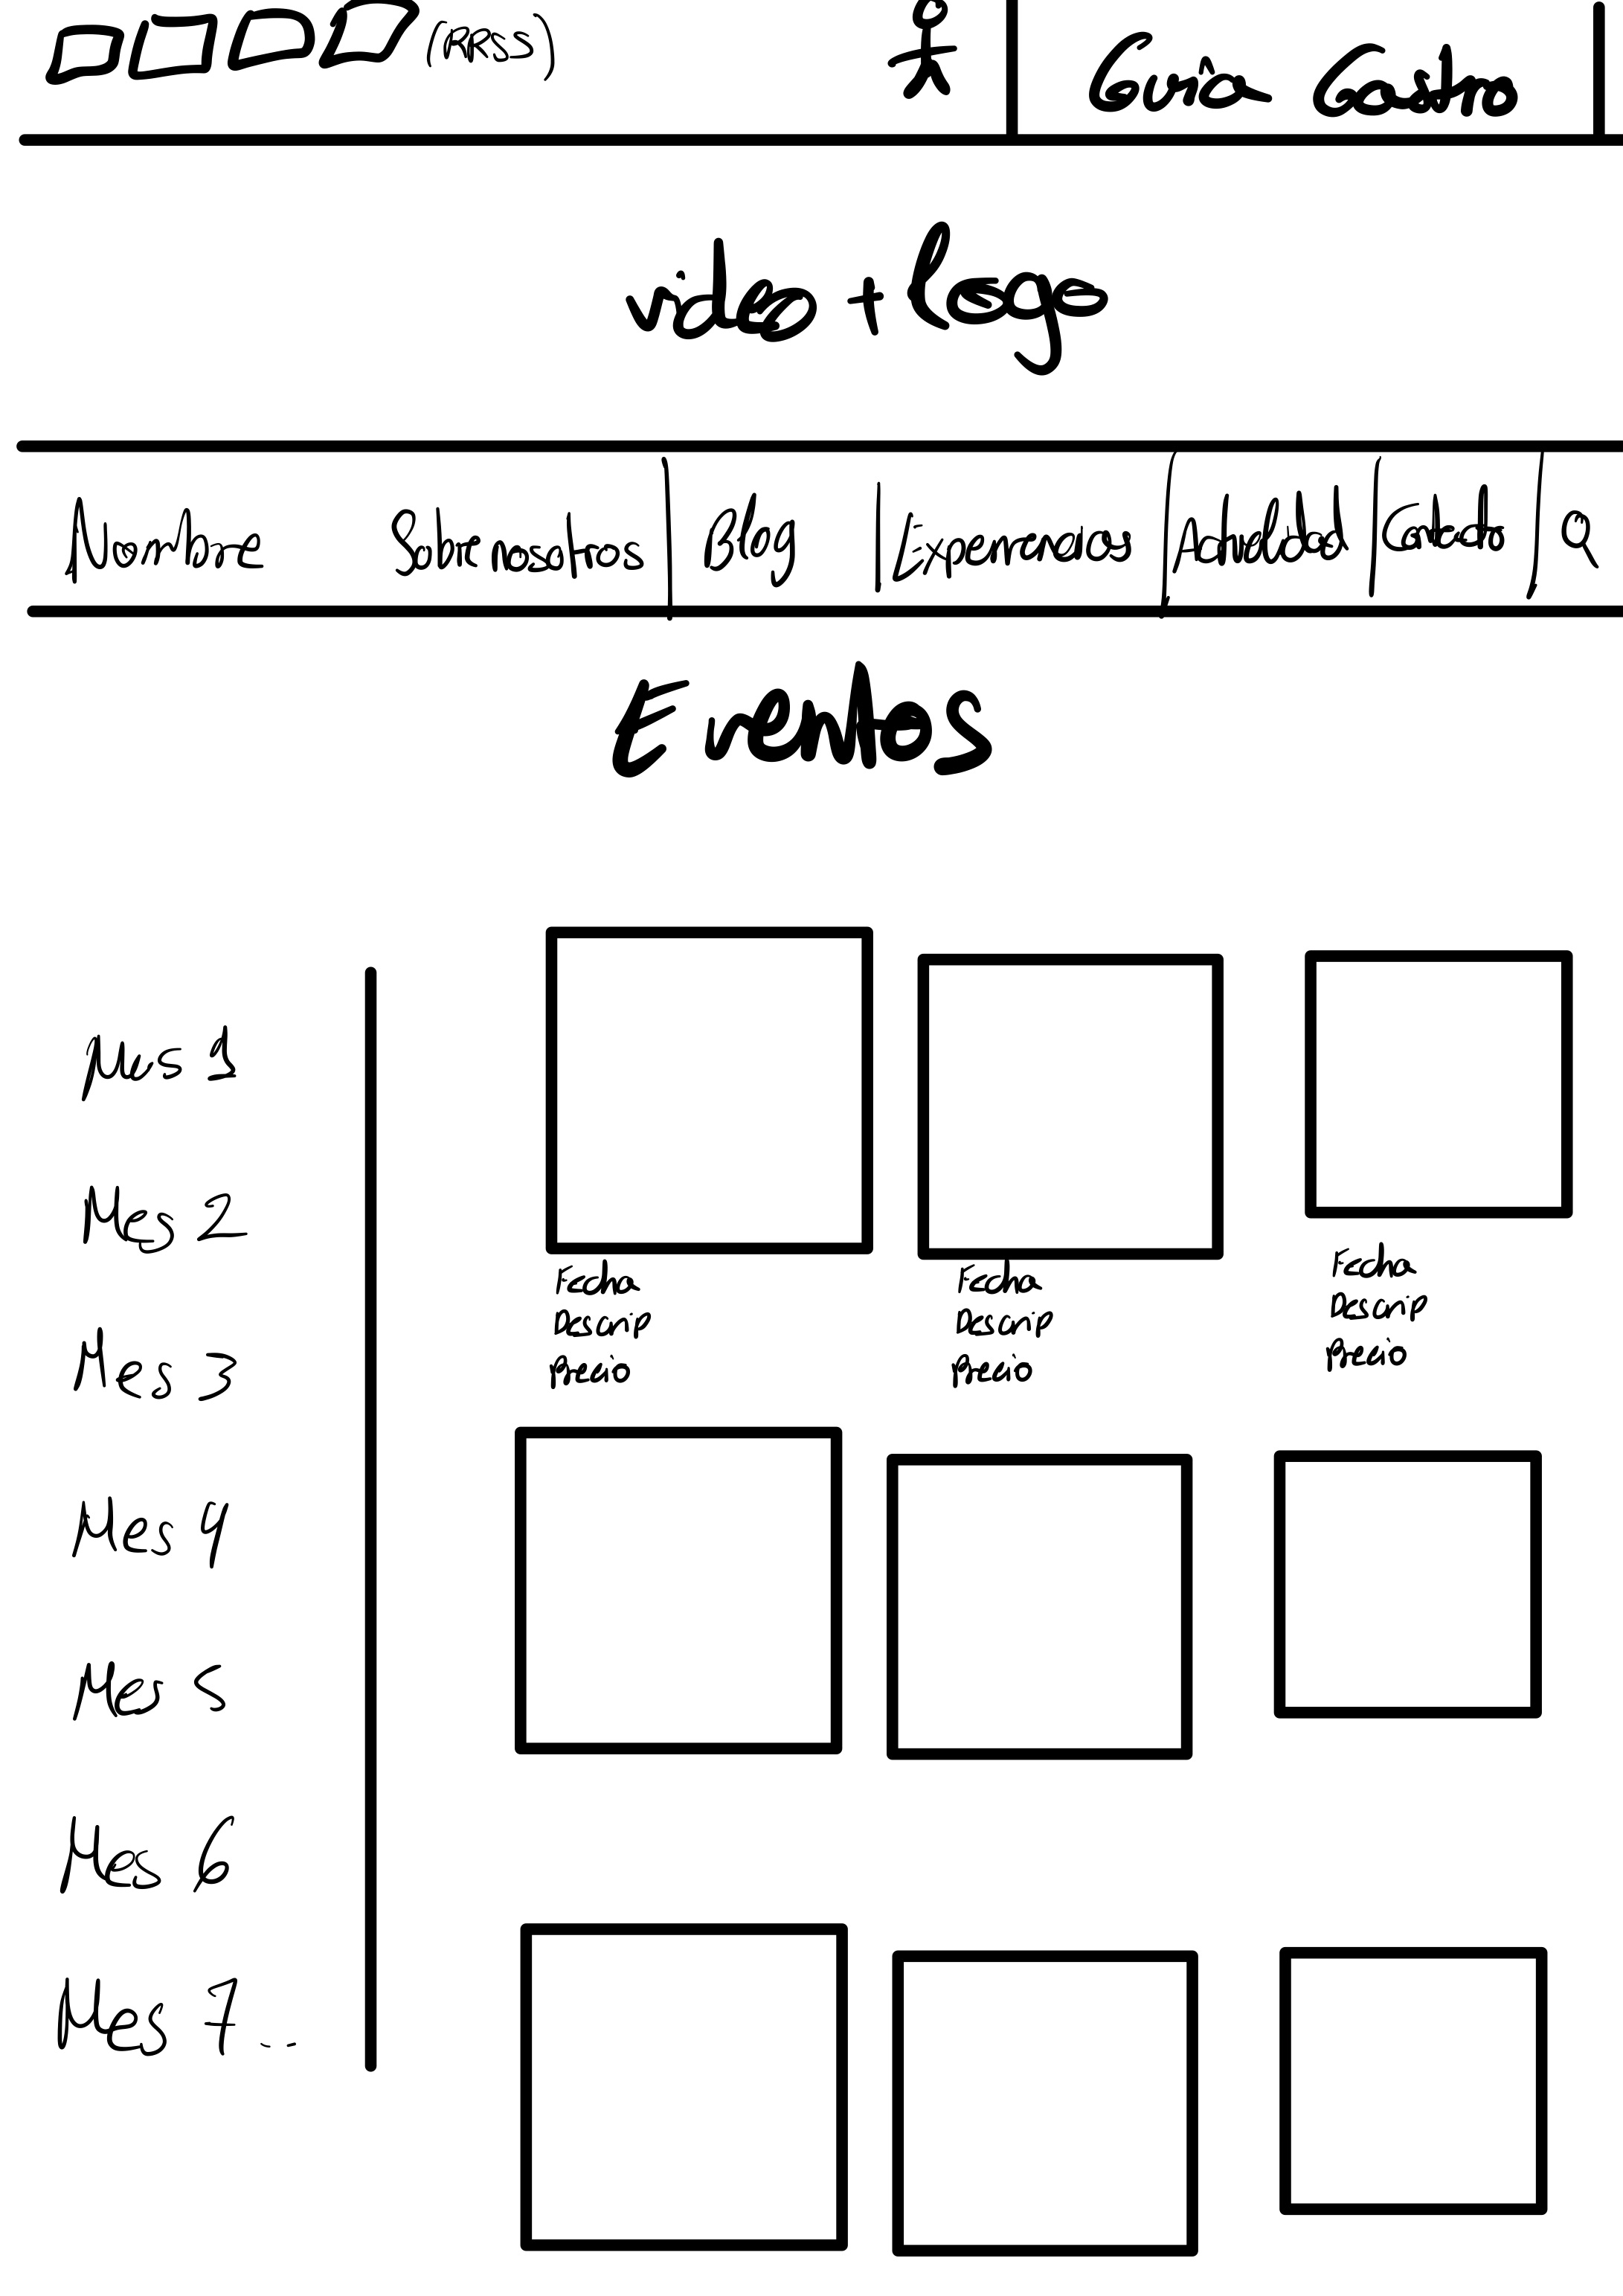 (RRSS)
Guía Gastro
video + logo
Nombre Sobre nosotros Blog Experiencias Actividad Contacto
Eventos
Mes 1
Mes 2
Mes 3
Mes 4
Mes 5
Mes 6
Mes 7 ..
Fecha
Descrip
Precio
Fecha
Descrip
Precio
Fecha
Descrip
Precio